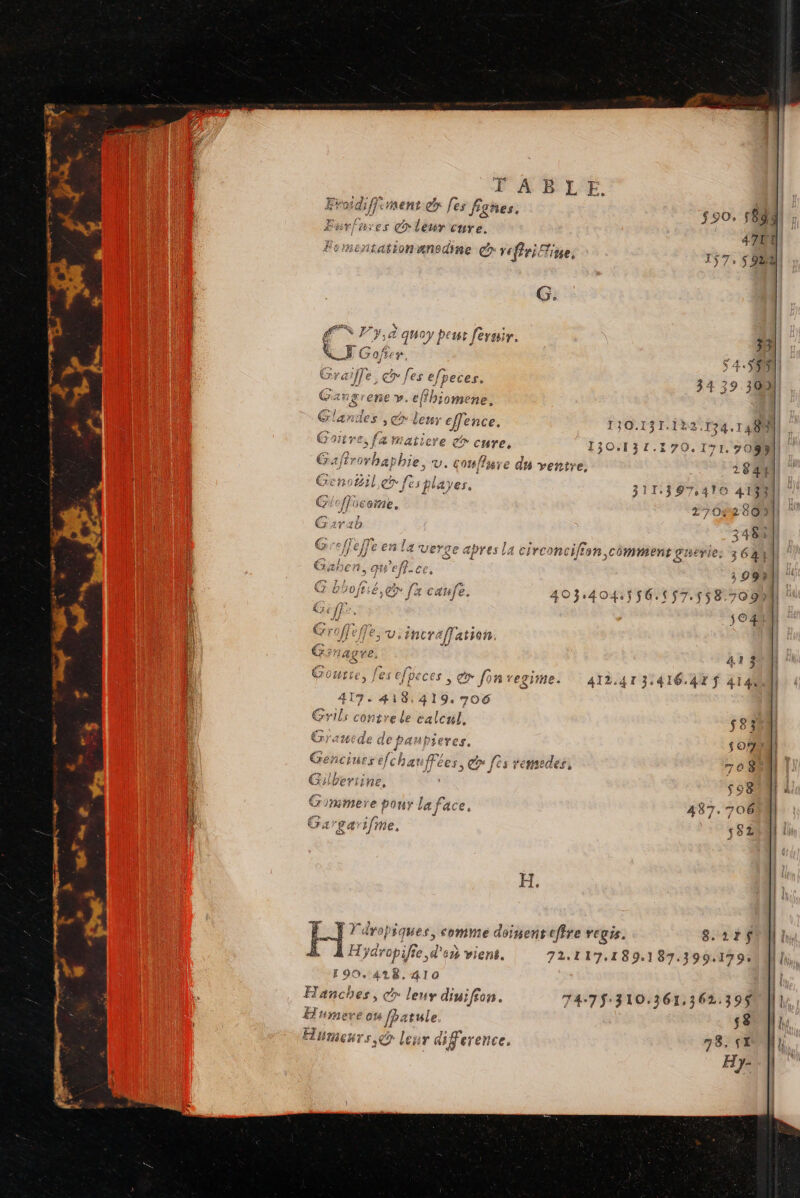 TABLE.
Froidissement & ses signes. 590. 589
Furfures & leur cure. 471
Fomentation anodine & restrictive. 157. 592
G.
GVy, à quoy peut seruir. 33
Gosier. 54.555
Graisse, & ses especes. 34 39 300
Gangrene v. esthiomene.
Glandes, & leur essence. 130.131.122.134.148
Goitre, sa matiere & cure. 130.131.170.171.709
Gastrorhaphie, v. cousture du ventre. 284
Genoüil & ses playes. 311.397.410 413
Glossocome. 270.280
Garab 348
Grossesse en la verge apres la circoncision, comment guerie. 364
Gahen, qu'est-ce. 399
G bbosité, & sa cause. 403.404.556.557.558.709
Gesse. 504
Grossesse, v. incrassation.
Gonagre. 413
Goutte, ses especes, & son regime. 412.413.416.415 414
417. 418. 419. 706
Grils contre le calcul. 583
Grauede de paupieres. 507
Genciues eschauffées, & ses remedes. 708
Gilbertine. 598
Gommere pour la face. 487. 706
Gargarisme. 582
H.
HYdropiques, comme doiuent estre regis. 8. 215
Hydropisie, d'où vient. 72.117.189.187.399.179.
190. 428. 410
Hanches, & leur diuision. 74.75.310.361.362.395
Humere ou spatule. 58
Humeurs, & leur difference. 78. 51
Hy-